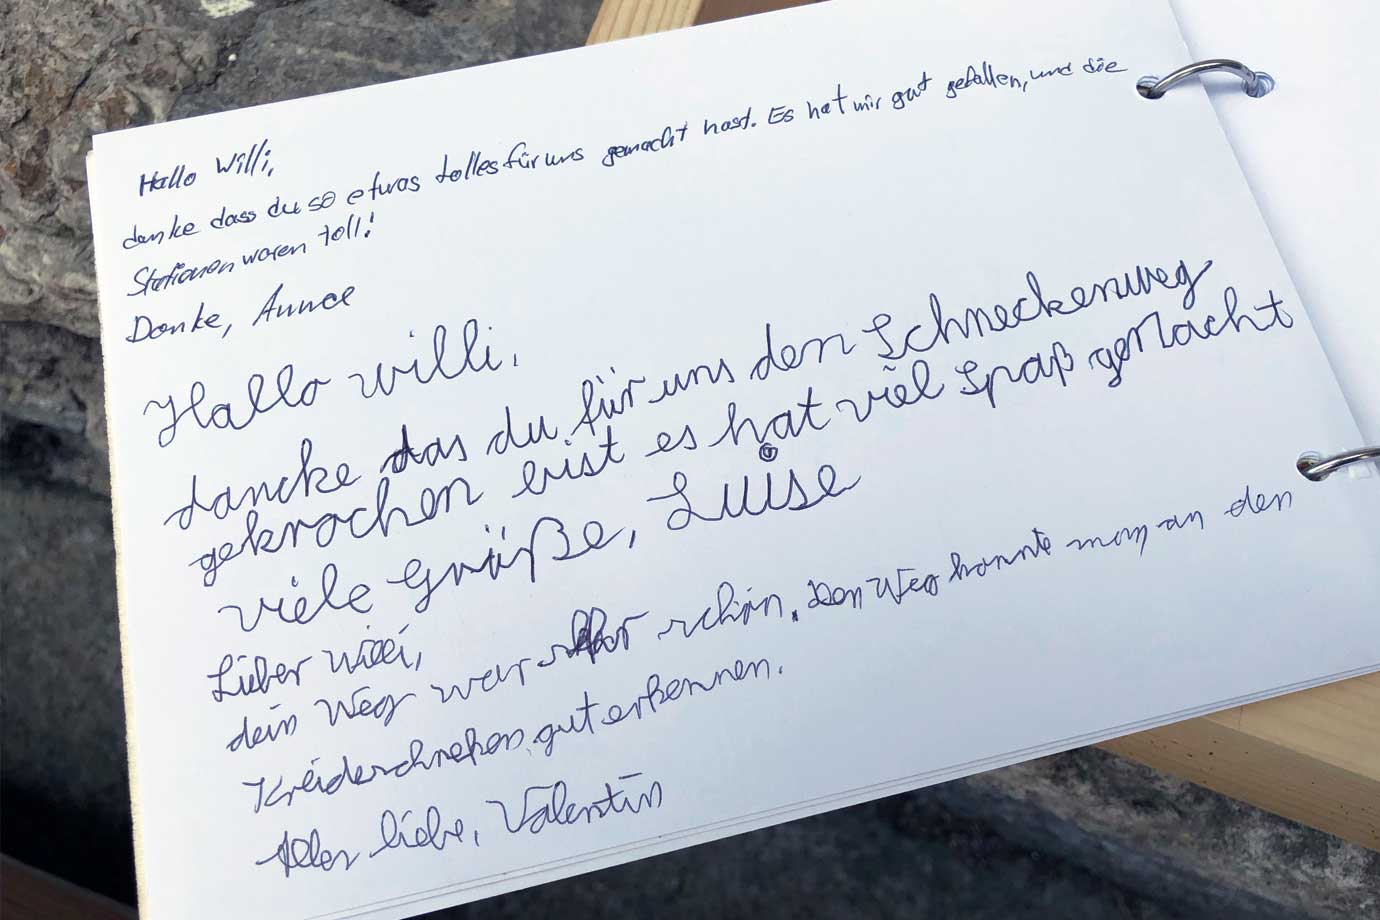 Hallo Willi,
danke dass du so etwas tolles für uns gemacht hast. Es hat mir gut gefallen, und die
Stationen waren toll!
Danke, Annee
Hallo Willi,
dancke das du für uns den Schneckenweg
gekrochen bist es hat viel Spaß gemacht
viele Grüße, Luise
Lieber Willi,
dein Weg war sehr schön. Den Weg konnte man an den
Kreideschneken gut erkennen.
Alles liebe, Valentin